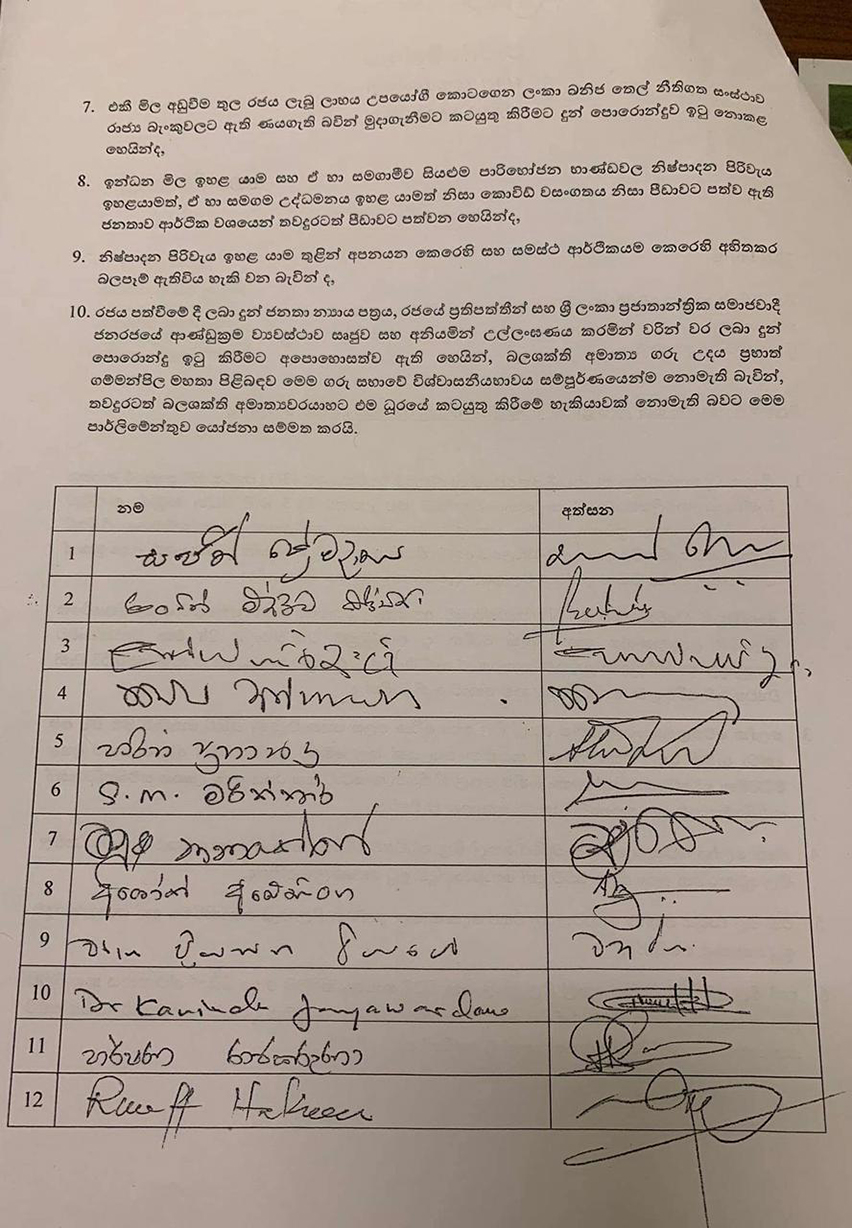 7. එකී මිල අඩුවීම තුල රජය ලැබූ ලාභය උපයෝගී කොටගෙන ලංකා ඛනිජ තෙල් නීතිගත සංස්ථාව
රාජ්‍ය බැංකුවලට ඇති ණයගැති බවින් මුදාගැනීමට කටයුතු කිරීමට දුන් පොරොන්දුව ඉටු නොකළ
හෙයින්ද,
8. ඉන්ධන මිල ඉහළ යාම සහ ඒ හා සමගාමීව සියළුම පාරිභෝජන භාණ්ඩවල නිෂ්පාදන පිරිවැය
ඉහළයාමත්, ඒ හා සමගම උද්ධමනය ඉහළ යාමත් නිසා කොවිඩ් වසංගතය නිසා පීඩාවට පත්ව ඇති
ජනතාව ආර්ථික වශයෙන් තවදුරටත් පීඩාවට පත්වන හෙයින්ද,
9. නිෂ්පාදන පිරිවැය ඉහළ යාම තුළින් අපනයන කෙරෙහි සහ සමස්ථ ආර්ථිකයම කෙරෙහි අහිතකර
බලපෑම් ඇතිවිය හැකි වන බැවින් ද,
10. රජය පත්වීමේ දී ලබා දුන් ජනතා න්‍යාය පත්‍රය, රජයේ ප්‍රතිපත්තීන් සහ ශ්‍රී ලංකා ප්‍රජාතාන්ත්‍රික සමාජවාදී
ජනරජයේ ආණ්ඩුක්‍රම ව්‍යවස්ථාව සෘජුව සහ අනියමින් උල්ලංඝණය කරමින් වරින් වර ලබා දුන්
පොරොන්දු ඉටු කිරීමට අපොහොසත්ව ඇති හෙයින්, බලශක්ති අමාත්‍ය ගරු උදය ප්‍රභාත්
ගම්මන්පිල මහතා පිළිබඳව මෙම ගරු සභාවේ විශ්වාසනීයභාවය සම්පූර්ණයෙන්ම නොමැති බැවින්,
තවදුරටත් බලශක්ති අමාත්‍යවරයාහට එම ධූරයේ කටයුතු කිරීමේ හැකියාවක් නොමැති බවට මෙම
පාර්ලිමේන්තුව යෝජනා සම්මත කරයි.
නම අත්සන
1 සජිත් ප්‍රේමදාස
2 රංජිත් මද්දුම බණ්ඩාර
3
4
5 හරින් ප්‍රනාන්දු
6 S.M. මරික්කාර්
7
8 අශෝක් අබේසිංහ
9
10 Dr Kavinda Jayawardana
11
12 Rauff Hakeem